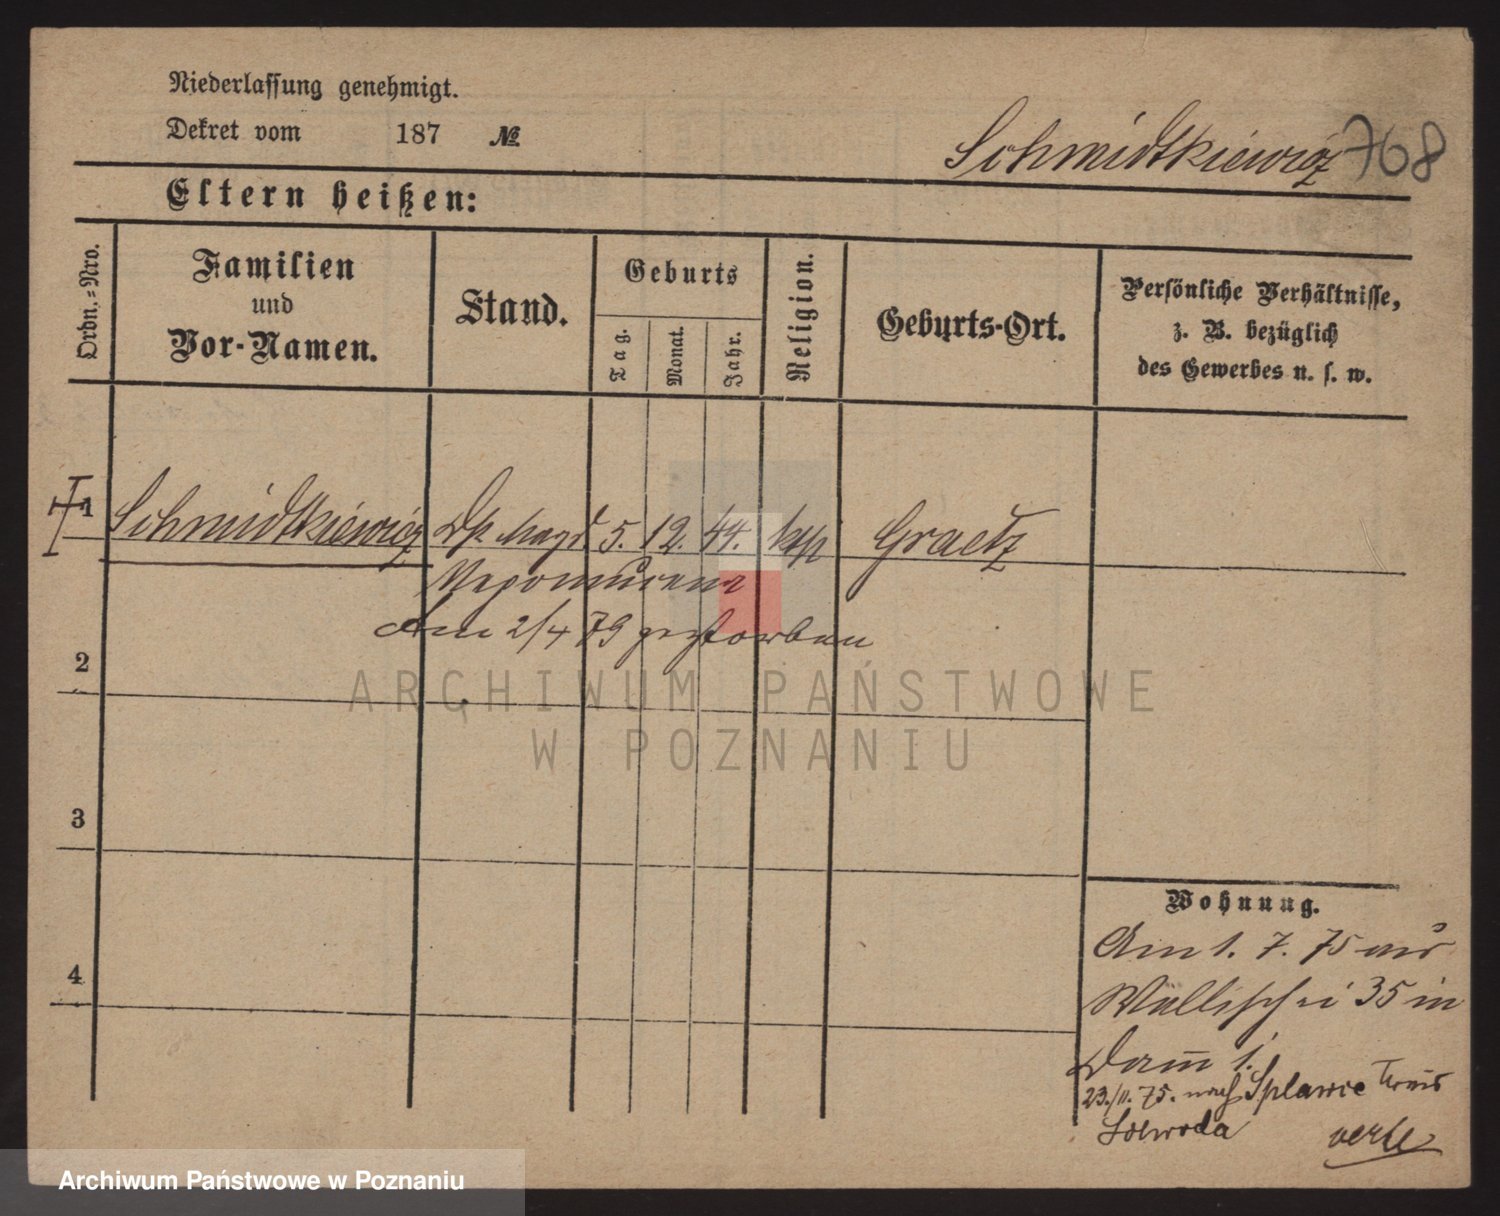 Niederlassung genehmigt.
Dekret vom 187 №
Schmidtkiewicz 768
Eltern heißen:
Ordn.-Nro.
Familien
und
Vor-Namen.
Stand.
Geburts
Tag.
Monat.
Jahr.
Religion.
Geburts-Ort.
Persönliche Verhältnisse,
z. B. bezüglich
des Gewerbes u. s. w.
1 Schmidtkiewicz Magd 5. 12. 44. ktp Graetz
Nepomucena
Am 2/4 79 gestorben
2
3
4
Wohnung.
Am 1. 7. 75 aus
Wallischei 35 in
Damm 1.
23./11. 75. nach Splawie Kreis
Schroda
ARCHIWUM PAŃSTWOWE
W POZNANIU
Archiwum Państwowe w Poznaniu